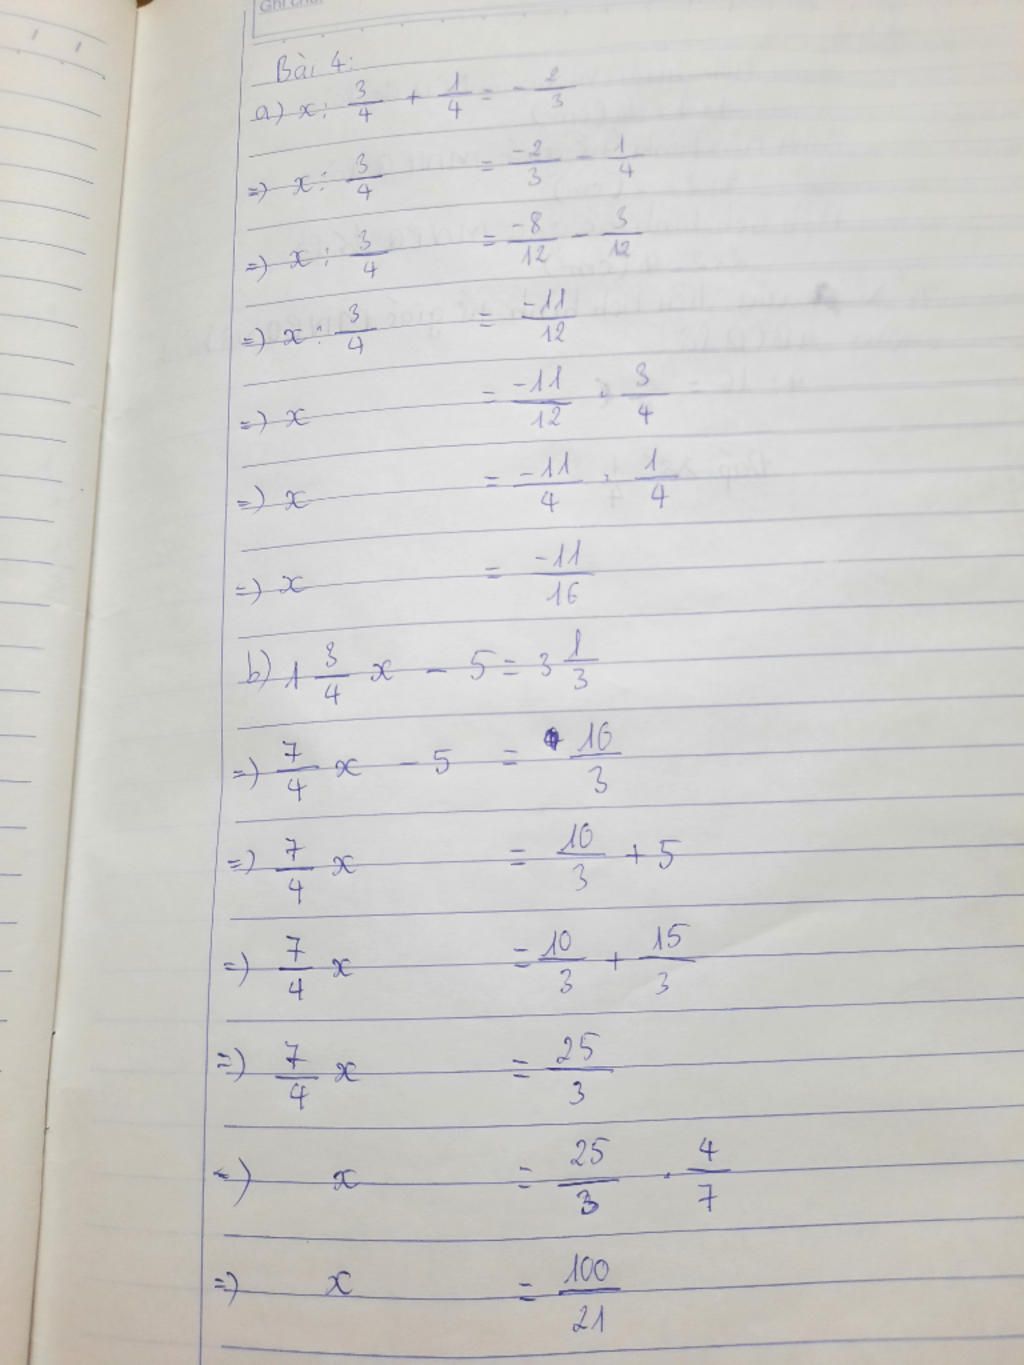 Ghi chú:
Bài 4:
a) x : 3/4 + 1/4 = - 2/3
=> x : 3/4 = -2/3 - 1/4
=> x : 3/4 = -8/12 - 3/12
=> x : 3/4 = -11/12
=> x = -11/12 . 3/4
=> x = -11/4 . 1/4
=> x = -11/16
b) 1 3/4 x - 5 = 3 1/3
=> 7/4 x - 5 = 10/3
=> 7/4 x = 10/3 + 5
=> 7/4 x = 10/3 + 15/3
=> 7/4 x = 25/3
=> x = 25/3 . 4/7
=> x = 100/21